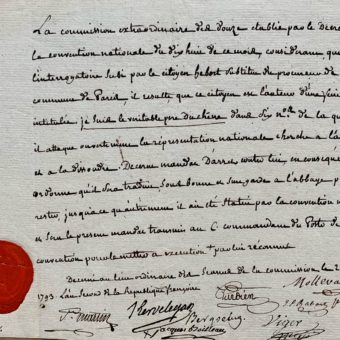 La commission extraordinaire des douze etablie par le Decre
la convention nationale du dix huit de ce mois, considerant que
l'interrogatoire subi par le citoyen hebert substitut du procureur de
commune de Paris, il resulte que ce citoyen est l'auteur d'une feui
intitulée je suis le véritable pere duchene dans six n.os de la qu
il attaque ouvertement la representation nationale cherche a l'
et a la dissoudre. Decerne mandat Darret contre lui, en conseque
ordonne qu'il sera traduit sous bonne et sure garde a l'abbaye p
rester jusqu'a ce qu'autrement il ait eté statué par la convention
et sera le present mandat transmis au C. commandant du Poste de
convention pour le mettre a execution par lui
Decerné au lieu ordinaire des seances de la commission le 2
1793. L'an second de la republique françoise
Mollevau
Bergoeing
jacques Boilleau
Viger